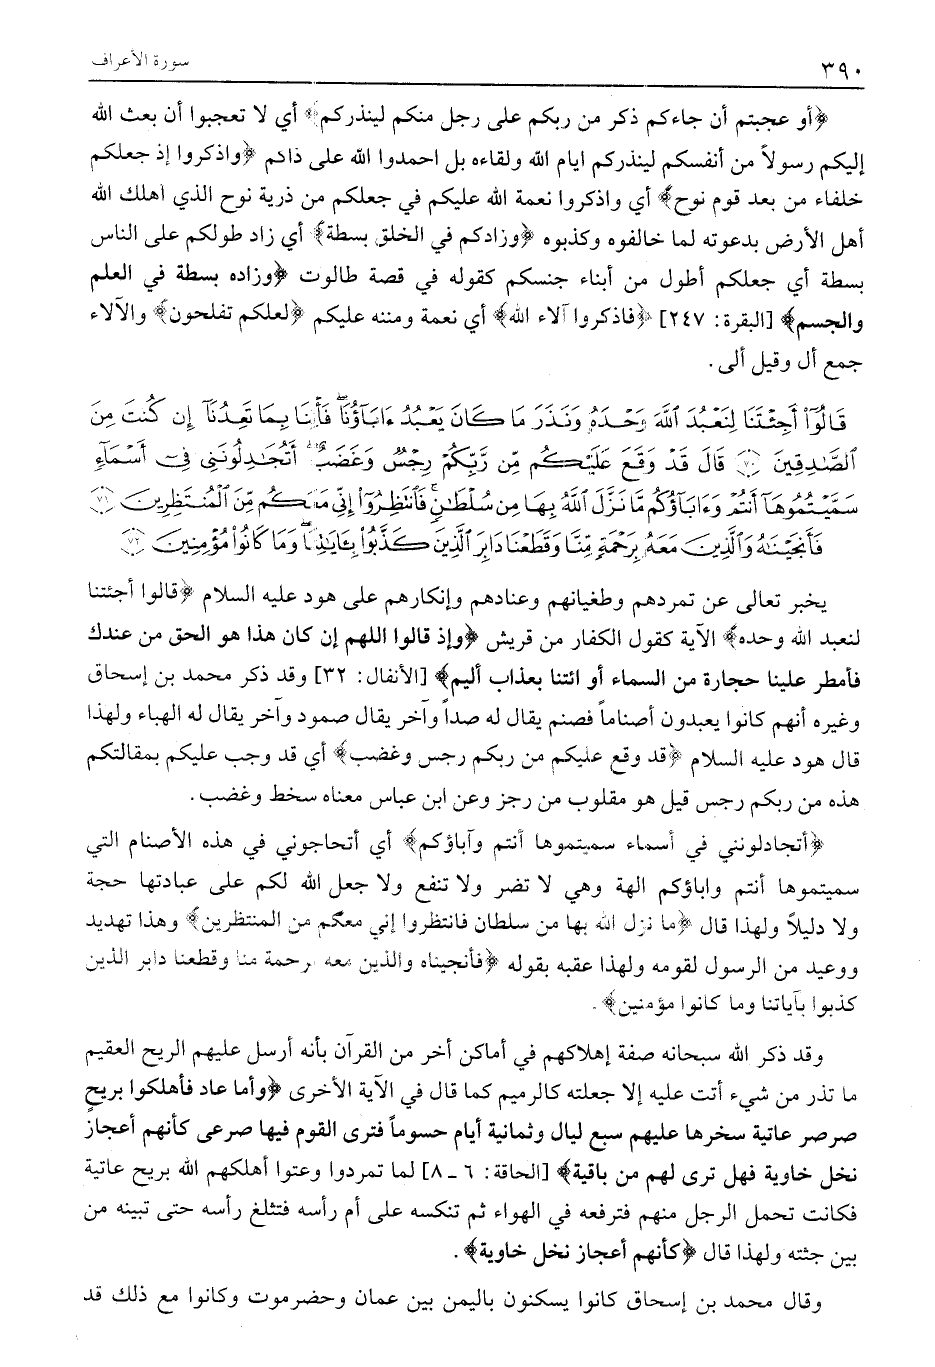 ٣٩٠ سورة الأعراف
﴿أو عجبتم أن جاءكم ذكر من ربكم على رجل منكم لينذركم﴾ أي لا تعجبوا أن بعث الله
إليكم رسولاً من أنفسكم لينذركم ايام الله ولقاءه بل احمدوا الله على ذاكم ﴿واذكروا إذ جعلكم
خلفاء من بعد قوم نوح﴾ أي واذكروا نعمة الله عليكم في جعلكم من ذرية نوح الذي أهلك الله
أهل الأرض بدعوته لما خالفوه وكذبوه ﴿وزادكم في الخلق بسطة﴾ أي زاد طولكم على الناس
بسطة أي جعلكم أطول من أبناء جنسكم كقوله في قصة طالوت ﴿وزاده بسطة في العلم
والجسم﴾ [البقرة: ٢٤٧] ﴿فاذكروا آلاء الله﴾ أي نعمة ومننه عليكم ﴿لعلكم تفلحون﴾ والآلاء
جمع أل وقيل ألى.
قَالُوٓا۟ أَجِئْتَنَا لِنَعْبُدَ ٱللَّهَ وَحْدَهُۥ وَنَذَرَ مَا كَانَ يَعْبُدُ ءَابَآؤُنَا ۖ فَأْتِنَا بِمَا تَعِدُنَآ إِن كُنتَ مِنَ
ٱلصَّـٰدِقِينَ ﴿٧٠﴾ قَالَ قَدْ وَقَعَ عَلَيْكُم مِّن رَّبِّكُمْ رِجْسٌ وَغَضَبٌ ۖ أَتُجَـٰدِلُونَنِى فِىٓ أَسْمَآءٍ
سَمَّيْتُمُوهَآ أَنتُمْ وَءَابَآؤُكُم مَّا نَزَّلَ ٱللَّهُ بِهَا مِن سُلْطَـٰنٍ ۚ فَٱنتَظِرُوٓا۟ إِنِّى مَعَكُم مِّنَ ٱلْمُنتَظِرِينَ ﴿٧١﴾
فَأَنجَيْنَـٰهُ وَٱلَّذِينَ مَعَهُۥ بِرَحْمَةٍ مِّنَّا وَقَطَعْنَا دَابِرَ ٱلَّذِينَ كَذَّبُوا۟ بِـَٔايَـٰتِنَا ۖ وَمَا كَانُوا۟ مُؤْمِنِينَ ﴿٧٢﴾
يخبر تعالى عن تمردهم وطغيانهم وعنادهم وإنكارهم على هود عليه السلام ﴿قالوا أجئتنا
لنعبد الله وحده﴾ الآية كقول الكفار من قريش ﴿وإذ قالوا اللهم إن كان هذا هو الحق من عندك
فأمطر علينا حجارة من السماء أو ائتنا بعذاب أليم﴾ [الأنفال: ٣٢] وقد ذكر محمد بن إسحاق
وغيره أنهم كانوا يعبدون أصناماً فصنم يقال له صداً وآخر يقال صمود وآخر يقال له الهباء ولهذا
قال هود عليه السلام ﴿قد وقع عليكم من ربكم رجس وغضب﴾ أي قد وجب عليكم بمقالتكم
هذه من ربكم رجس قيل هو مقلوب من رجز وعن ابن عباس معناه سخط وغضب.
﴿أتجادلونني في أسماء سميتموها أنتم وآباؤكم﴾ أي أتحاجوني في هذه الأصنام التي
سميتموها أنتم واباؤكم الهة وهي لا تضر ولا تنفع ولا جعل الله لكم على عبادتها حجة
ولا دليلاً ولهذا قال ﴿ما نزل الله بها من سلطان فانتظروا إني معكم من المنتظرين﴾ وهذا تهديد
ووعيد من الرسول لقومه ولهذا عقبه بقوله ﴿فأنجيناه والذين معه برحمة منا وقطعنا دابر الذين
كذبوا بآياتنا وما كانوا مؤمنين﴾.
وقد ذكر الله سبحانه صفة إهلاكهم في أماكن أخر من القرآن بأنه أرسل عليهم الريح العقيم
ما تذر من شيء أتت عليه إلا جعلته كالرميم كما قال في الآية الأخرى ﴿وأما عاد فأهلكوا بريحٍ
صرصر عاتية سخرها عليهم سبع ليال وثمانية أيام حسوماً فترى القوم فيها صرعى كأنهم أعجاز
نخل خاوية فهل ترى لهم من باقية﴾ [الحاقة: ٦ ـ ٨] لما تمردوا وعتوا أهلكهم الله بريح عاتية
فكانت تحمل الرجل منهم فترفعه في الهواء ثم تنكسه على أم رأسه فتثلغ رأسه حتى تبينه من
بين جثته ولهذا قال ﴿كأنهم أعجاز نخل خاوية﴾.
وقال محمد بن إسحاق كانوا يسكنون باليمن بين عمان وحضرموت وكانوا مع ذلك قد